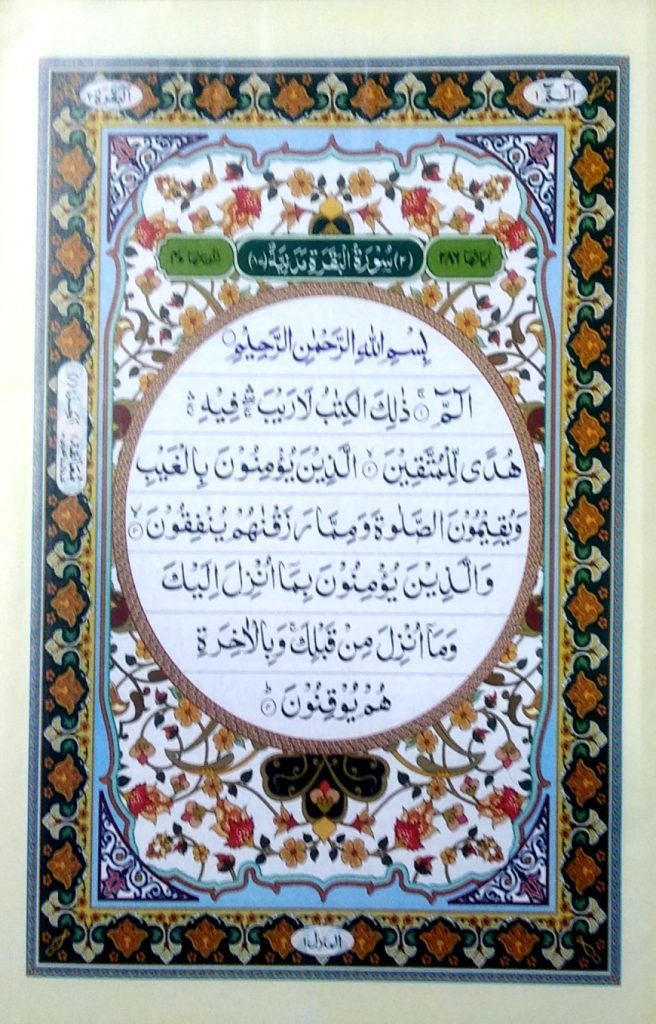 الٓمّٓ ١
البقرة ٢
اٰیاتها ٢٨٦
(٢) سُوْرَةُ الْبَقَرَةِ مَدَنِيَّةٌ (٨٧)
رکوعاتها ٤٠
بِسْمِ اللهِ الرَّحْمٰنِ الرَّحِيْمِ
الٓمّٓ ۚ ١ ذٰلِكَ الْكِتٰبُ لَا رَيْبَ ۛۖ فِيْهِ ۛۚ
هُدًى لِّلْمُتَّقِيْنَ ۙ ٢ الَّذِيْنَ يُؤْمِنُوْنَ بِالْغَيْبِ
وَيُقِيْمُوْنَ الصَّلٰوةَ وَمِمَّا رَزَقْنٰهُمْ يُنْفِقُوْنَ ۙ ٣
وَالَّذِيْنَ يُؤْمِنُوْنَ بِمَآ اُنْزِلَ اِلَيْكَ
وَمَآ اُنْزِلَ مِنْ قَبْلِكَ ۚ وَبِالْاٰخِرَةِ
هُمْ يُوْقِنُوْنَ ؕ ٤
المنزل ١